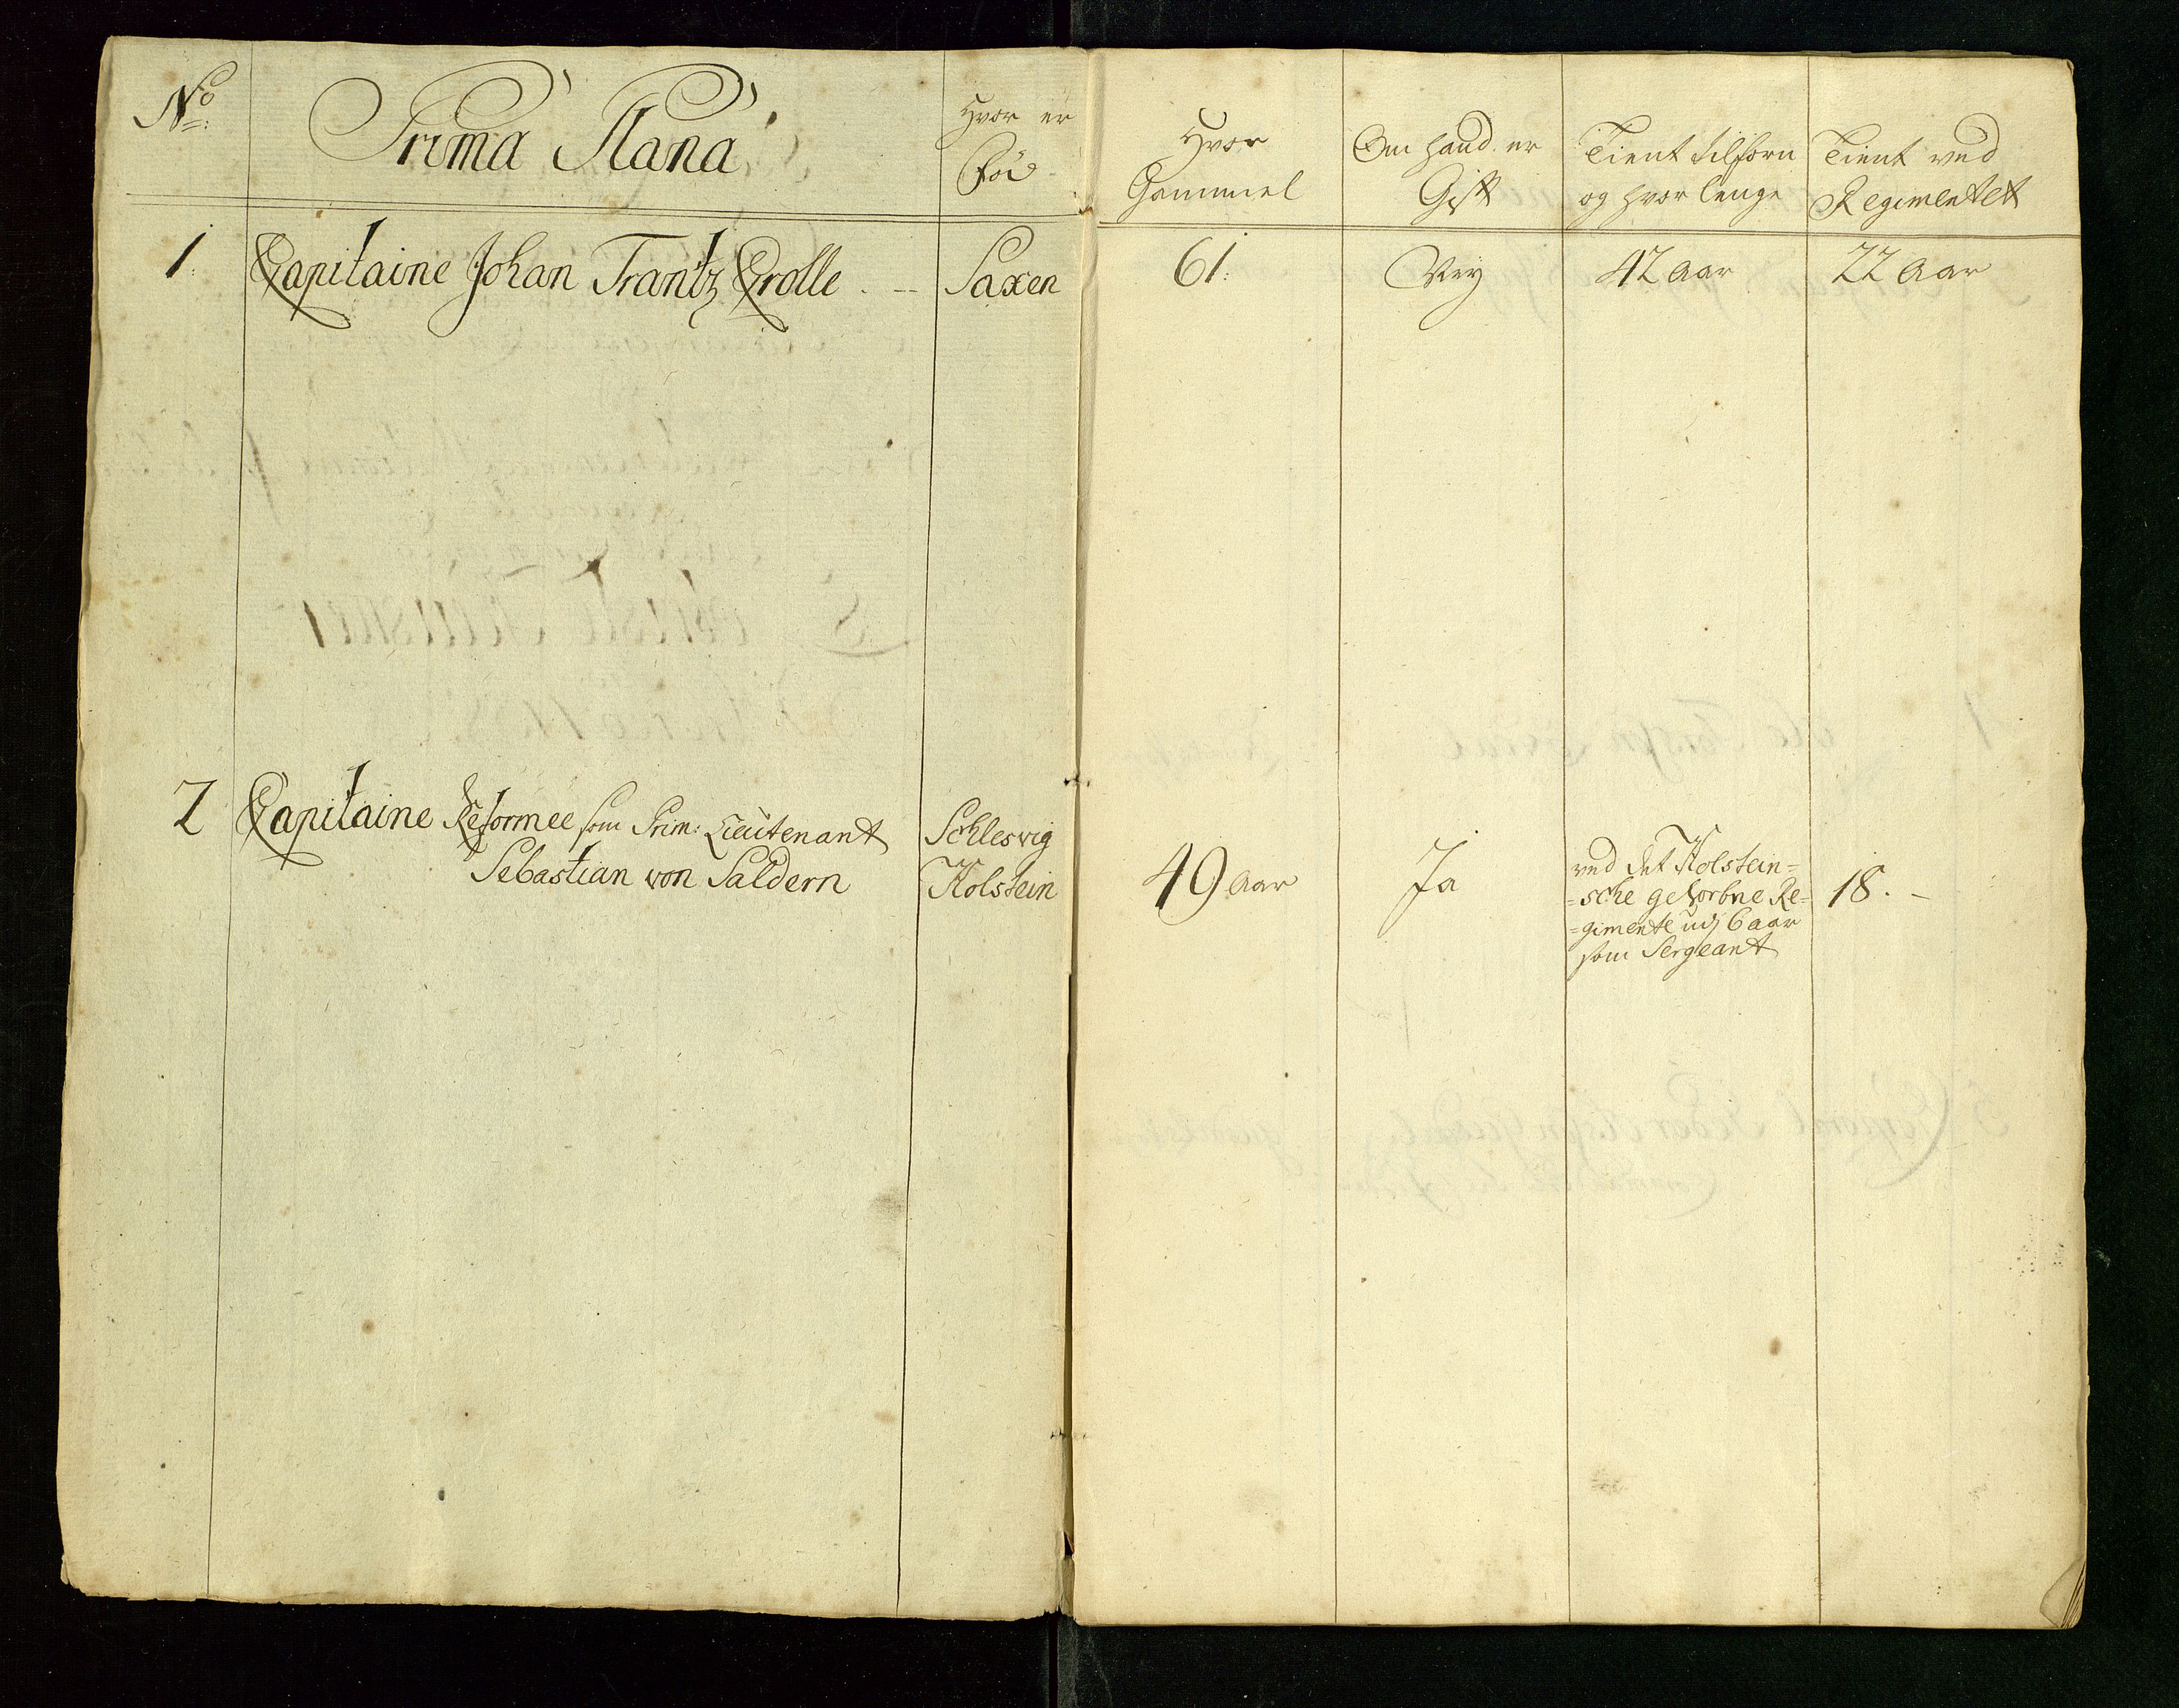 No Prima Plana Hvor er
Fød
Hvor
Gammel
Om hand er
Gift
Tient tilforn
og hvor lenge
Tient ved
Regimentet
1. Capitaine Johan Frantz Grolle . — Saxen 61. Ney 42 Aar 22 Aar
2 Capitaine Reformee som Prim: Lieutenant
Sebastian von Saldern
Schlesvig
Holstein
49 Aar Ja
ved det Holstein=
=sche gevorbne Re=
=gimente udj 6 aar
som Sergeant
18. —